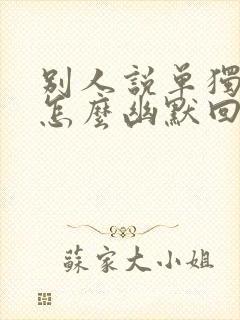 別人說單獨
怎麼幽默回
蘇家大小姐